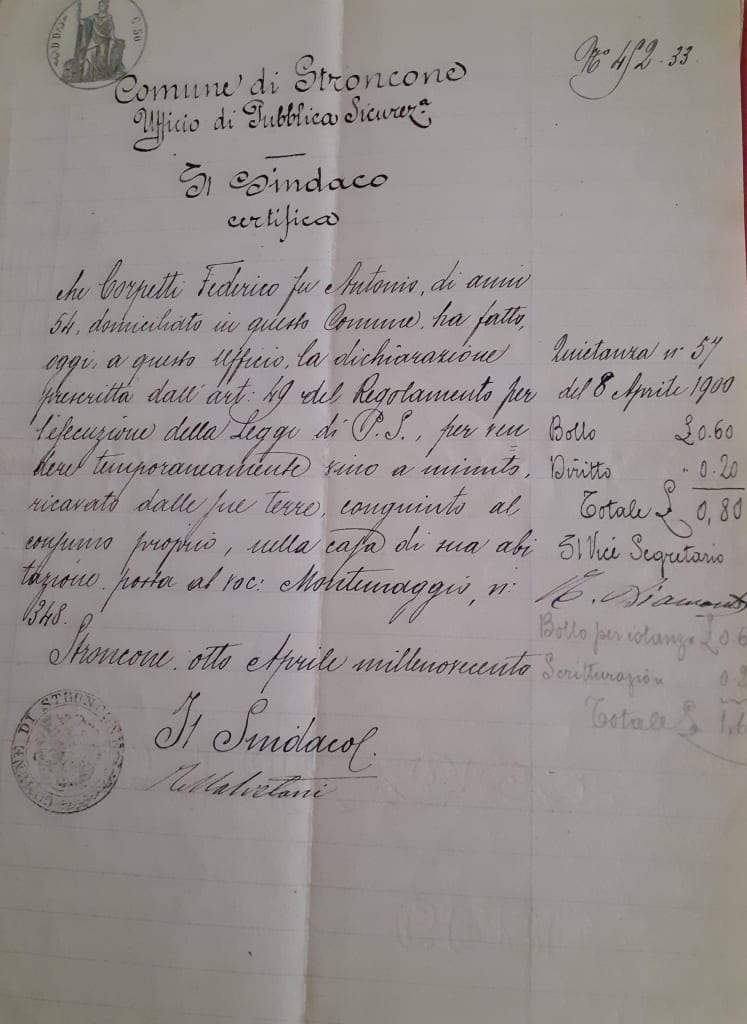 C. 50
N° 452.33
Comune di Stroncone
Ufficio di Pubblica Sicurezª
Il Sindaco
certifica
che Corpetti Federico fu Antonio, di anni
54, domiciliato in questo Comune, ha fatto,
oggi, a questo Ufficio, la dichiarazione
prescritta dall'art: 49 del Regolamento per
l'esecuzione della Leggi di P.S., per ven
dere temporaneamente vino a minuto,
ricavato dalle sue terre, congiunto al
consumo proprio, nella casa di sua abi
tazione posta al voc: Montemaggio, n:
348.
Stroncone, otto Aprile millenovecento
Il Sindaco
Malvetani
COMUNE DI STRONCONE
Quietanza n° 57
del 8 Aprile 1900
Bollo £ 0.60
Diritto " 0.20
Totale £ 0,80
Il Vice Segretario
Bollo per istanza £ 0.6
Scritturazion 0.2
Totale £ 1,6